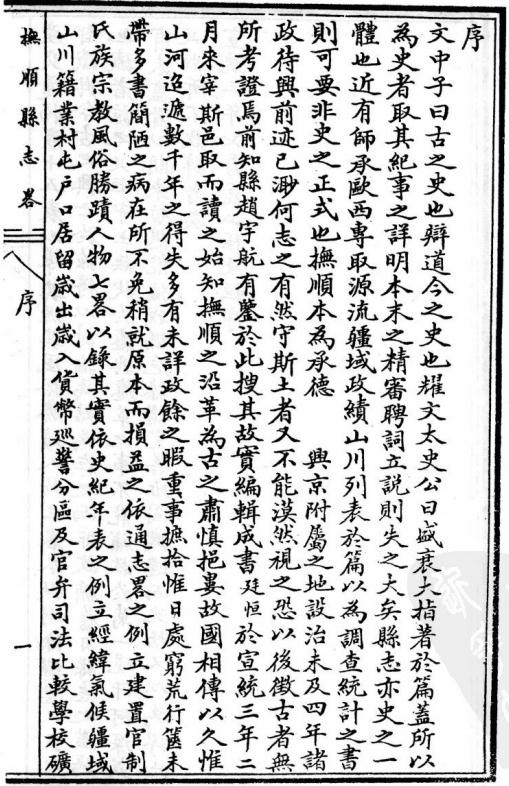 序
文中子曰古之史也辯道今之史也耀文太史公曰盛衰大指著於篇蓋所以
為史者取其紀事之詳明本末之精審聘詞立説則失之大矣縣志亦史之一
體也近有師承歐西專取源流疆域政績山川列表於篇以為調查統計之書
則可要非史之正式也撫順本為承德　興京附屬之地設治未及四年諸
政待興前迹已渺何志之有然守斯土者又不能漠然視之恐以後徵古者無
所考證焉前知縣趙宇航有鑒於此搜其故實編輯成書廷恒於宣統三年二
月來宰斯邑取而讀之始知撫順之沿革為古之肅慎挹婁故國相傳以久惟
山河迢遞數千年之得失多有未詳政餘之暇重事摭拾惟日處窮荒行篋未
帶多書簡陋之病在所不免稍就原本而損益之依通志畧之例立建置官制
氏族宗教風俗勝蹟人物七畧以錄其實依史紀年表之例立經緯氣候疆域
山川籍業村屯戶口居留歲出歲入貨幣巡警分區及官弁司法比較學校礦
撫順縣志畧
序
一